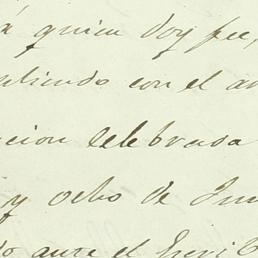 á quien doy fee,
uliendo con el a
cion celebrada
y ocho de Jun
do ante el Escri